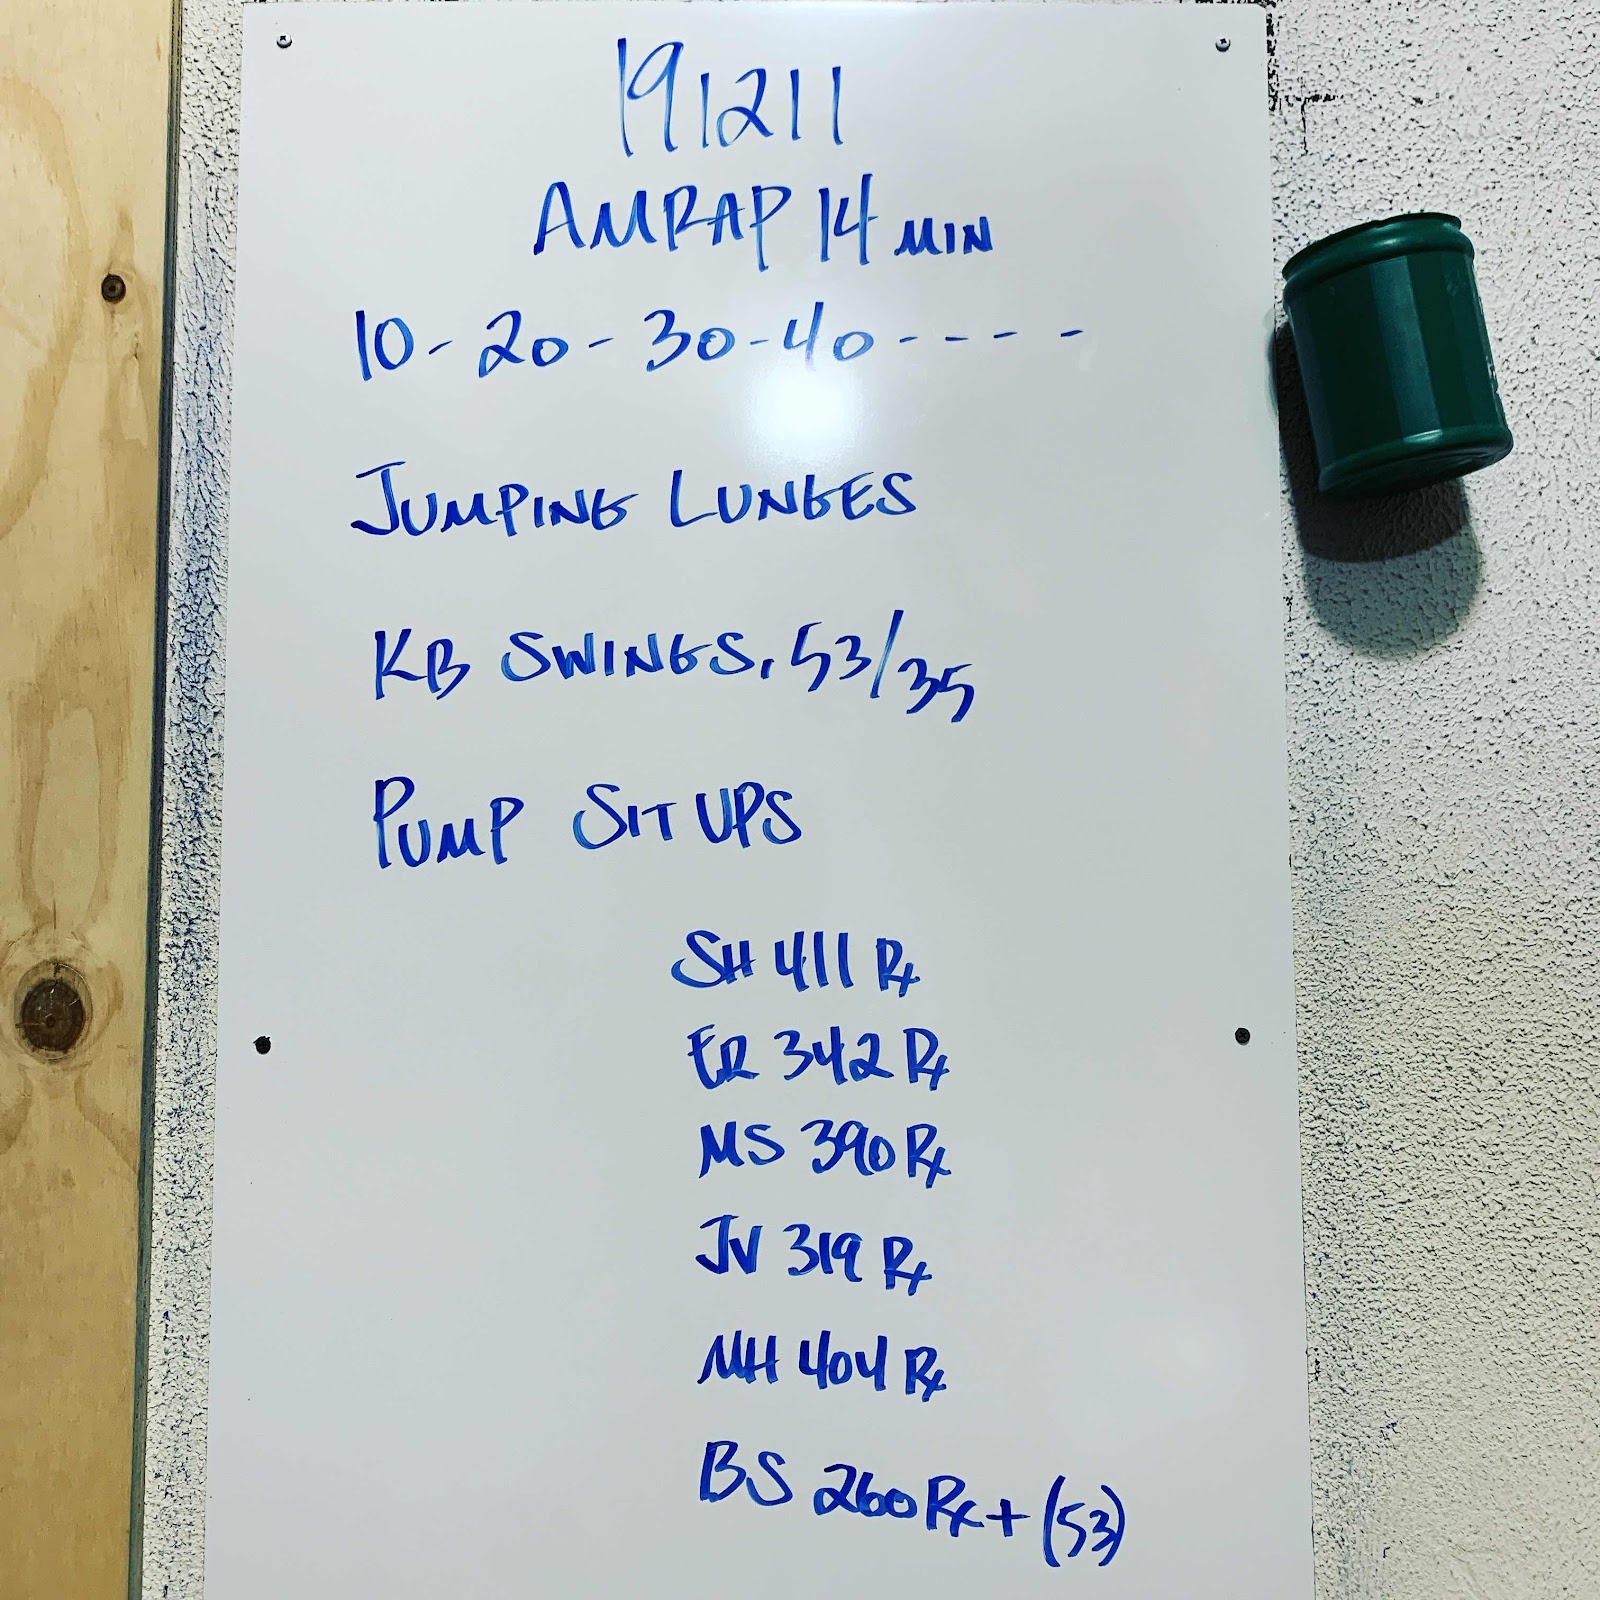 191211
AMRAP 14 MIN
10-20-30-40-----
JUMPING LUNGES
KB SWINGS, 53/35
PUMP SIT UPS
SH 411 Rx
ER 342 Rx
MS 390 Rx
JV 319 Rx
MH 404 Rx
BS 260 Rx+ (53)